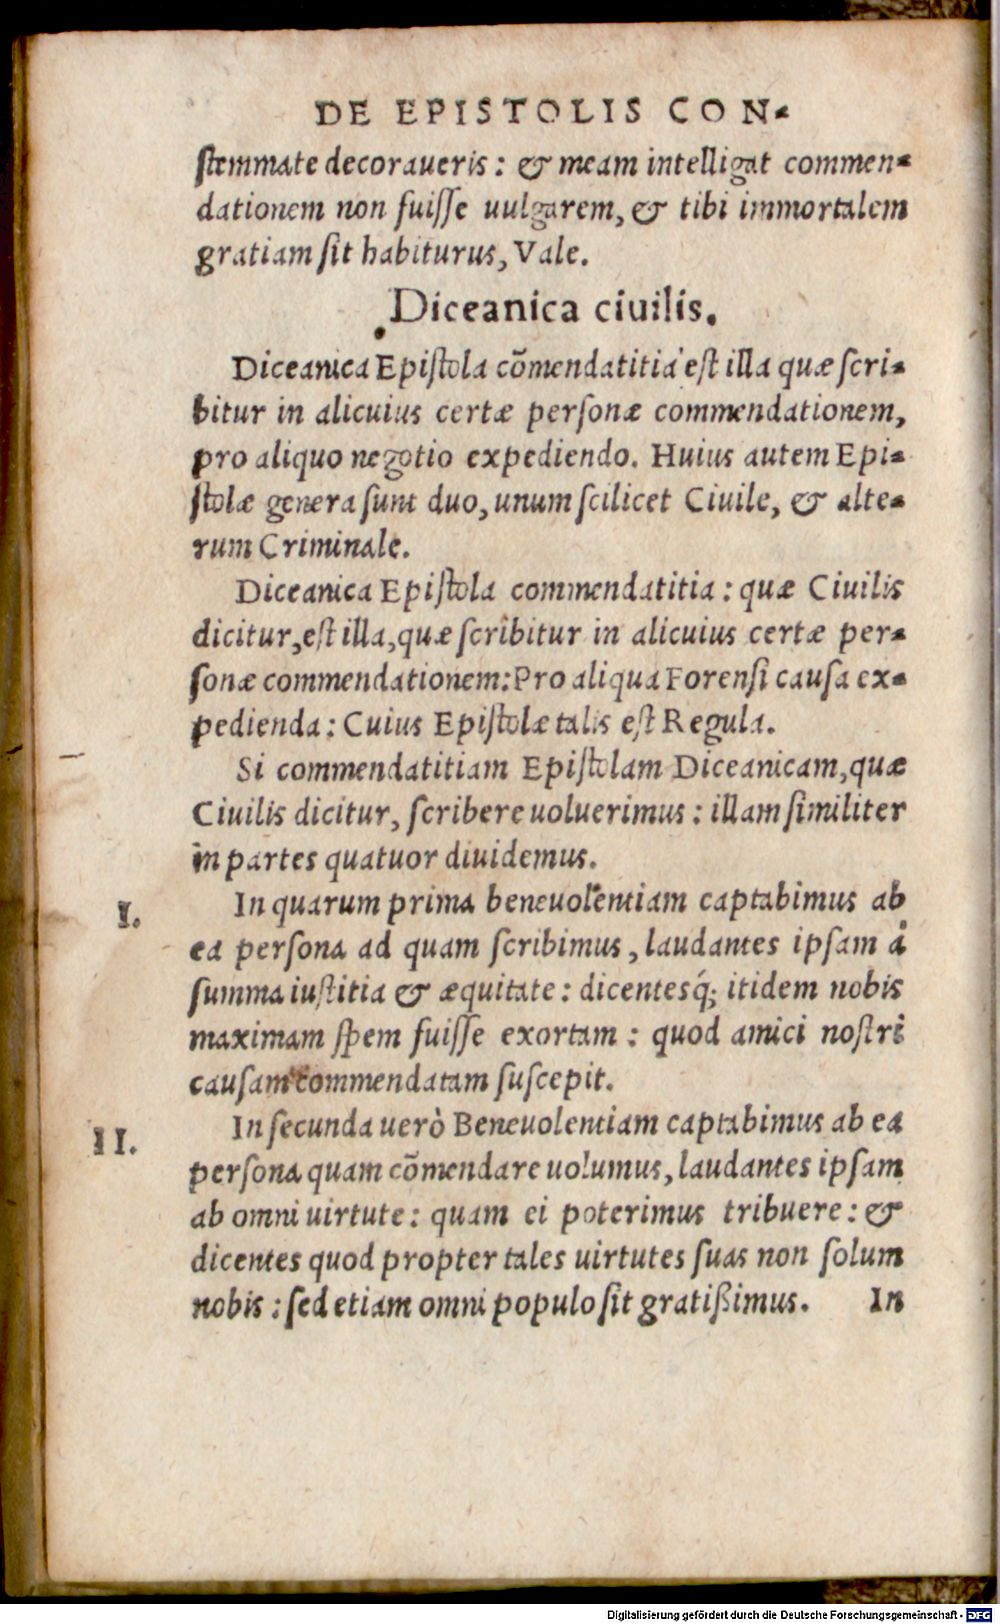 DE EPISTOLIS CON-
stemmate decoraueris: & meam intelligat commen-
dationem non fuisse uulgarem, & tibi immortalem
gratiam sit habiturus, Vale.
Diceanica ciuilis.
Diceanica Epistola cōmendatitia est illa quæ scri-
bitur in alicuius certæ personæ commendationem,
pro aliquo negotio expediendo. Huius autem Epi-
stolæ genera sunt duo, unum scilicet Ciuile, & alte-
rum Criminale.
Diceanica Epistola commendatitia: quæ Ciuilis
dicitur, est illa, quæ scribitur in alicuius certæ per-
sonæ commendationem: Pro aliqua Forensi causa ex-
pedienda: Cuius Epistolæ talis est Regula.
Si commendatitiam Epistolam Diceanicam, quæ
Ciuilis dicitur, scribere uoluerimus: illam similiter
in partes quatuor diuidemus.
I. In quarum prima beneuolentiam captabimus ab
ea persona ad quam scribimus, laudantes ipsam à
summa iustitia & æquitate: dicentesq́; itidem nobis
maximam spem fuisse exortam: quod amici nostri
causam commendatam suscepit.
II. In secunda uerò Beneuolentiam captabimus ab ea
persona quam cōmendare uolumus, laudantes ipsam
ab omni uirtute: quam ei poterimus tribuere: &
dicentes quod propter tales uirtutes suas non solum
nobis: sed etiam omni populo sit gratißimus. In
Digitalisierung gefördert durch die Deutsche Forschungsgemeinschaft - DFG